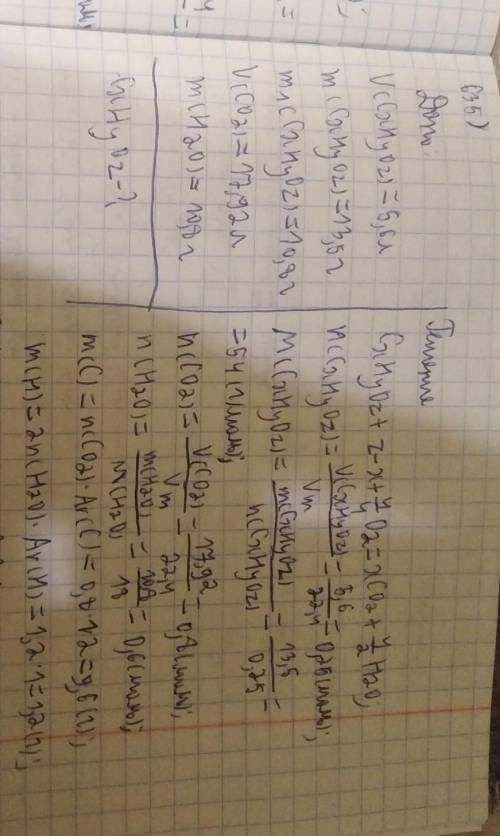 (35)
Дано:
V(CxHyOz)=5,6л
m(CxHyOz)=13,5г
m₁(CxHyOz)=10,8г
V(CO₂)=17,92л
m(H₂O)=10,8г
CxHyOz-?
Решение
n(CxHyOz)=V(CxHyOz)/Vm=5,6/22,4=0,25(моль);
M(CxHyOz)=m(CxHyOz)/n(CxHyOz)=13,5/0,25=
=54(г/моль);
n(CO₂)=V(CO₂)/Vm=17,92/22,4=0,8(моль);
n(H₂O)=m(H₂O)/M(H₂O)=10,8/18=0,6(моль);
m(C)=n(CO₂)·Ar(C)=0,8·12=9,6(г);
m(H)=2n(H₂O)·Ar(H)=1,2·1=1,2(г);